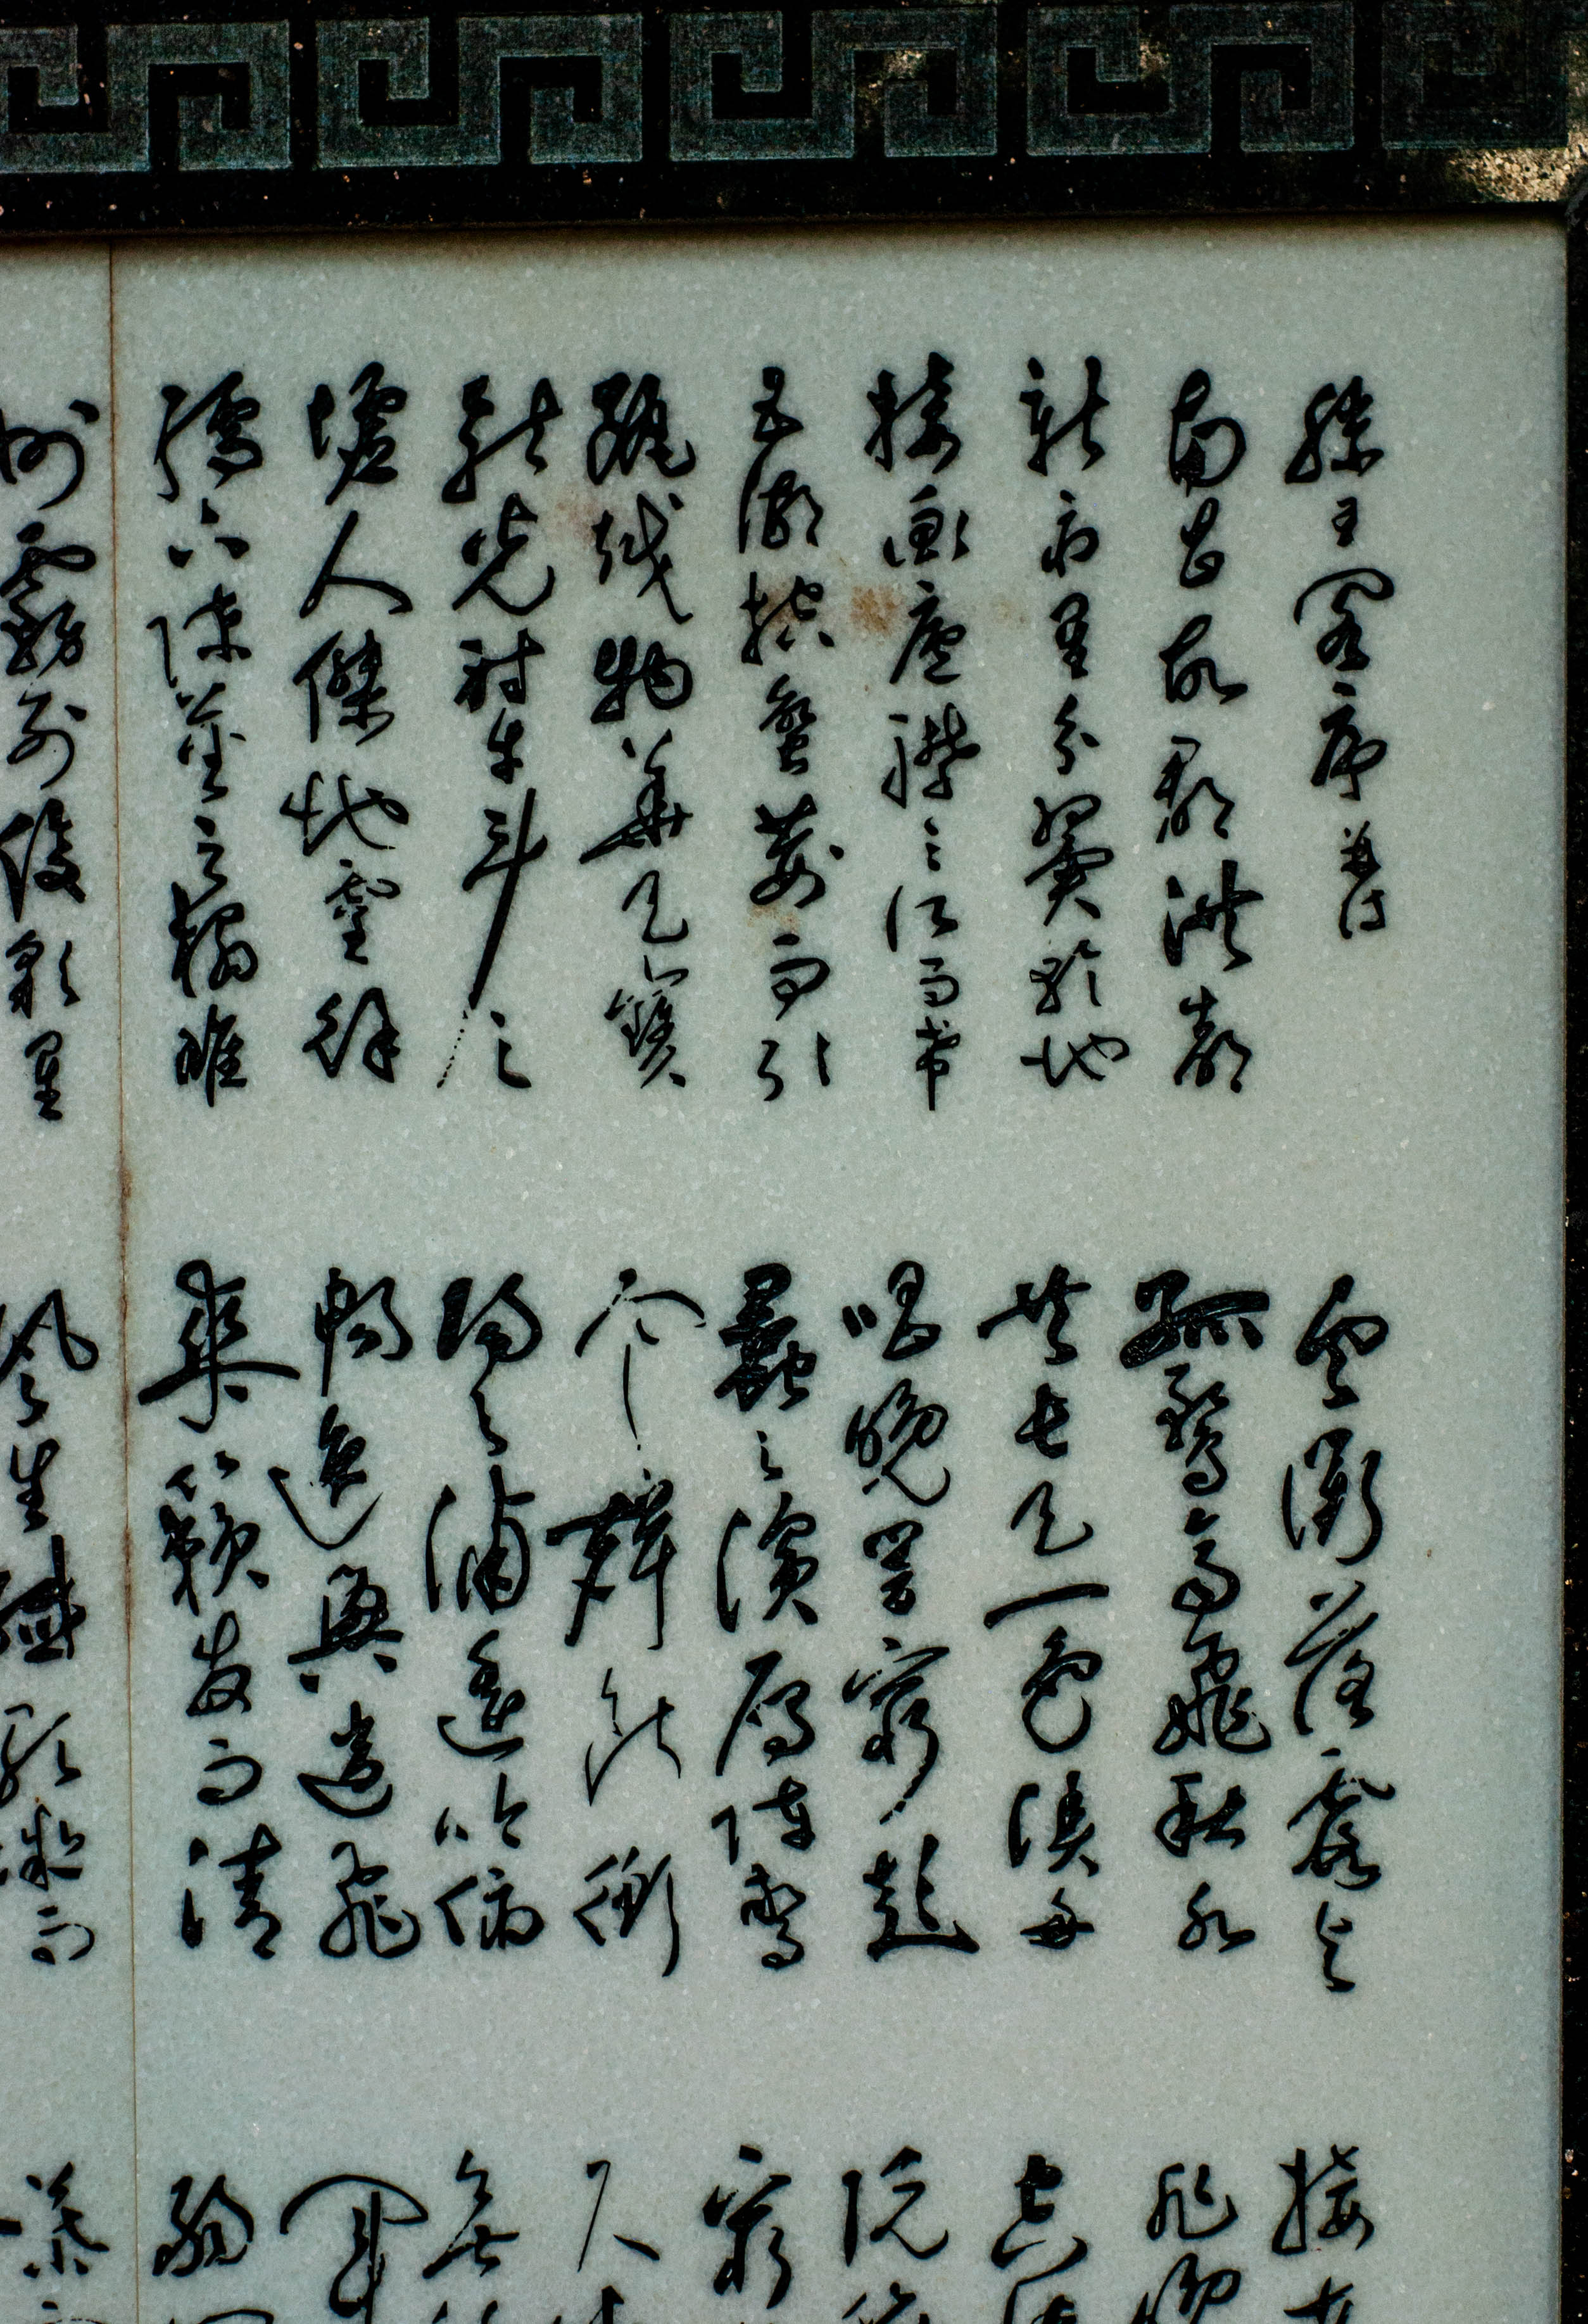 滕王閣序 并詩
南昌故郡洪都
新府星分翼軫地
接衡廬襟三江而帶
五湖控蠻荊而引
甌越物華天寶
龍光射牛斗之
墟人傑地靈徐
孺下陳蕃之榻雄
州霧列俊彩星
雲衢落霞與
孤鶩齊飛秋水
共長天一色漁舟
唱晚響窮彭
蠡之濱雁陣驚
寒聲斷衡
陽之浦遙吟俯
暢逸興遄飛
爽籟發而清
風生纖歌凝而
接東
非晚
空
阮籍
窮
尺
無
軍
弱